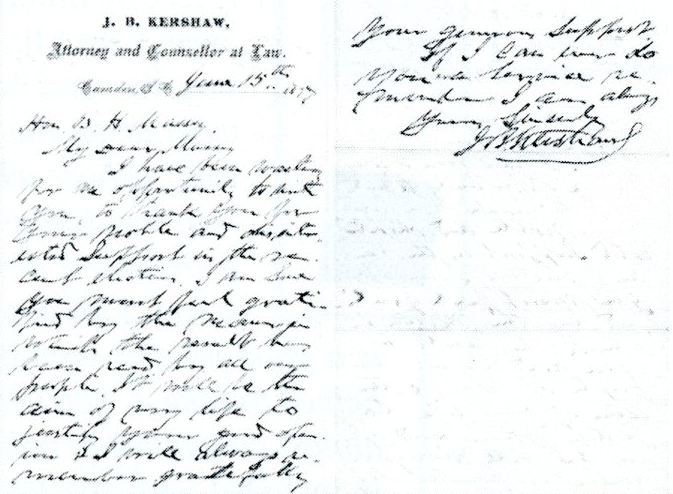 J. B. KERSHAW,
Attorney and Counsellor at Law.
Camden, S. C. June 15th 1877
Hon. B. H. Massey.
My Dear Massey
I have been waiting
for an opportunity to
you, to thank you for
your noble and disinter-
ested support in the re-
cent election. I am sure
you must feel grati-
fied by the manner in
which the result has
been recd by all our
people. It will be the
aim of my life to
justify your good opin-
ion & I will always re-
member gratefully
Your generous support
If I can ever do
you a service re-
member I am always
Yours Sincerely
J B Kershaw